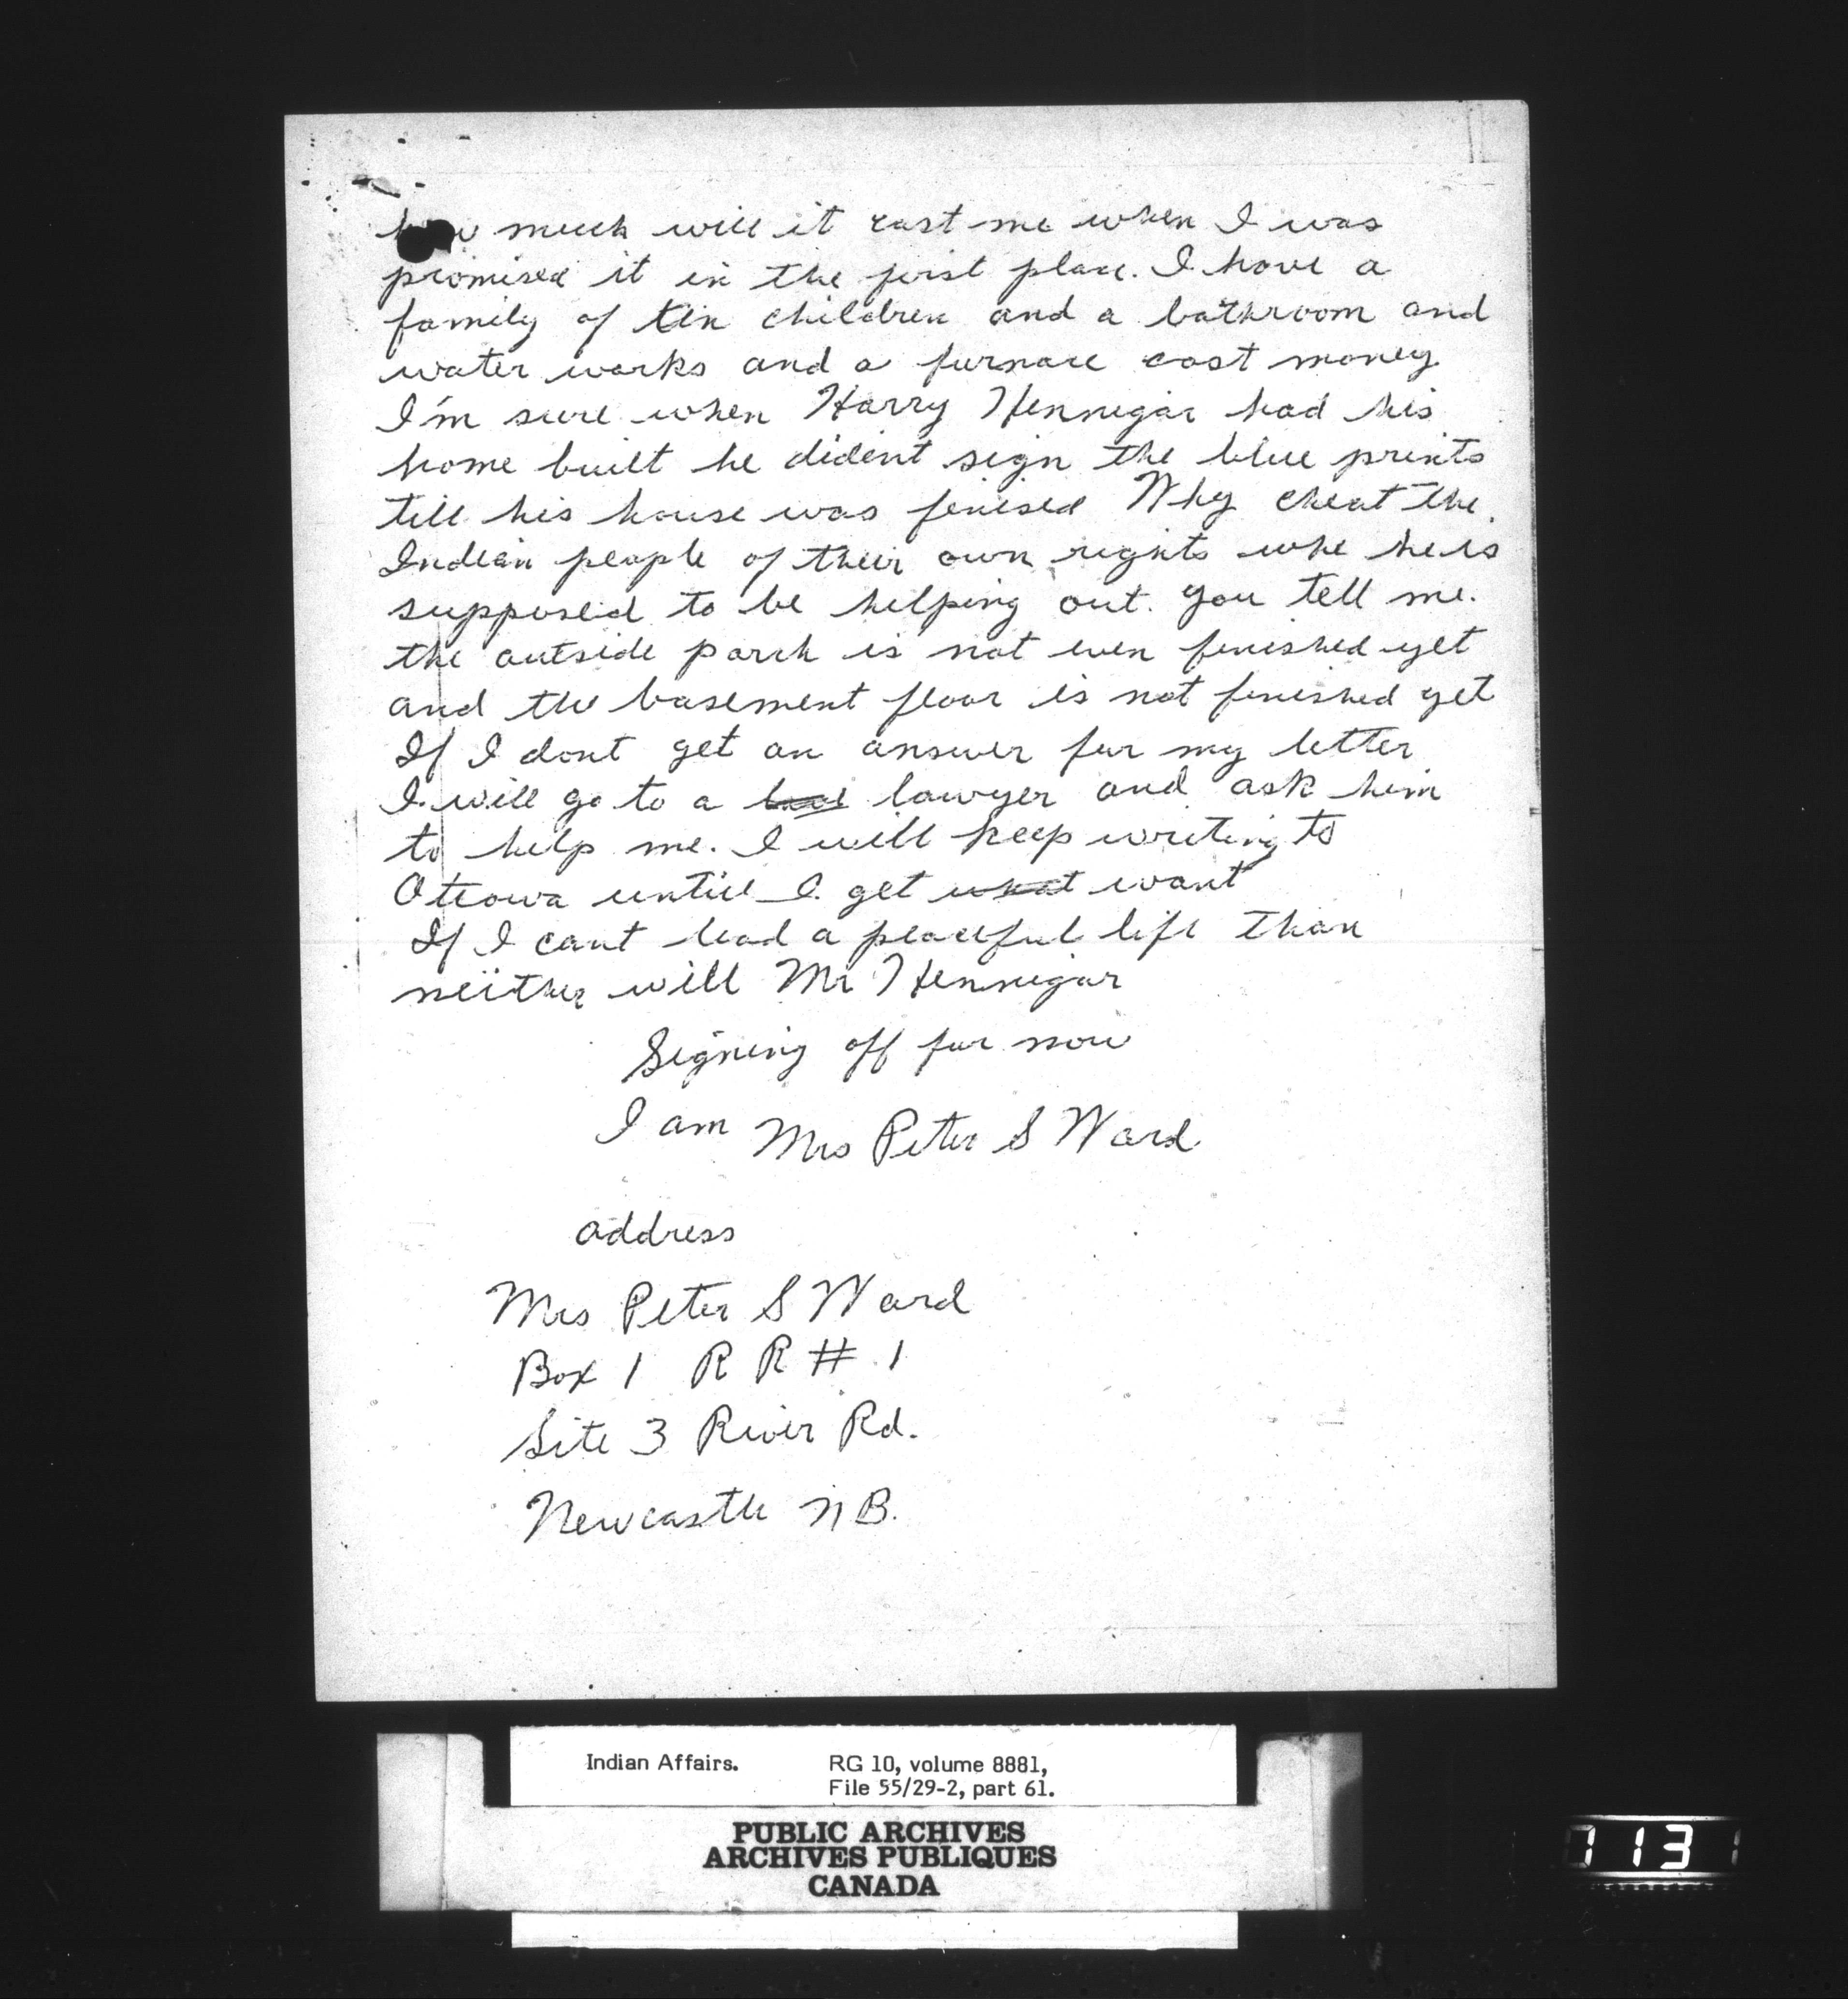 how much will it cost me when I was
promised it in the first place. I have a
family of ten children and a bathroom and
water works and a furnace cost money
I'm sure when Harry Hennegar had his
home built he dident sign the blue prints
till his house was finised Why cheat the
Indian people of their own rights who he is
supposed to be helping out. you tell me.
the outside porch is not even finished yet
and the basement floor is not finished yet
If I dont get an answer for my letter
I will go to a lawyer and ask him
to help me. I will keep writing to
Ottowa untill I get what want
If I cant lead a peaceful life than
neither will Mr Hennegar
Signing off for now
I am Mrs Peter S Ward
address
Mrs Peter S Ward
Box 1 R R # 1
Site 3 River Rd.
Newcastle NB.
Indian Affairs. RG 10, volume 8881,
File 55/29-2, part 61.
PUBLIC ARCHIVES
ARCHIVES PUBLIQUES
CANADA
1131